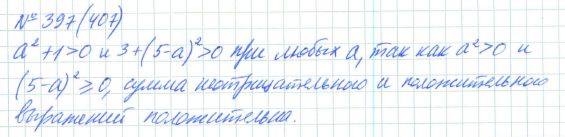 № 397(407)
a²+1>0 и 3+(5-a)²>0 при любых a, так как a²>0 и
(5-a)²≥0, сумма неотрицательного и положительного
выражений положительна.